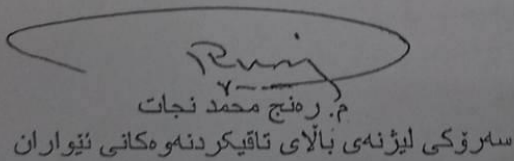 م. رەنج محمد نجات
سەرۆکی لیژنەی باڵای تاقیکردنەوەکانی ئێواران